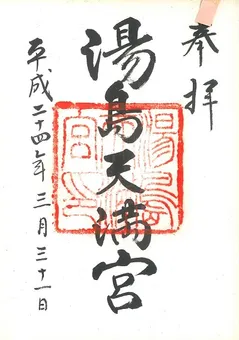 奉拝
湯島天満宮
平成二十四年三月三十一日